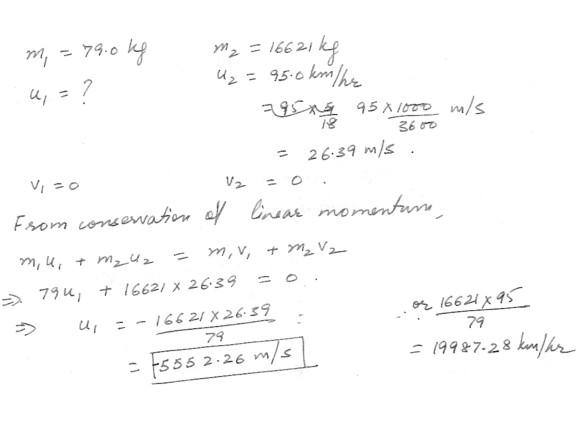 m₁ = 79.0 kg
m₂ = 16621 kg
u₁ = ?
u₂ = 95.0 km/hr
= 95 × 5/18 95 × 1000/3600 m/s
= 26.39 m/s .
v₁ = 0
v₂ = 0 .
From conservation of linear momentum,
m₁u₁ + m₂u₂ = m₁v₁ + m₂v₂
⇒ 79u₁ + 16621 × 26.39 = 0 .
⇒ u₁ = - 16621 × 26.39/79
= -5552.26 m/s
or 16621 × 95/79
= 19987.28 km/hr